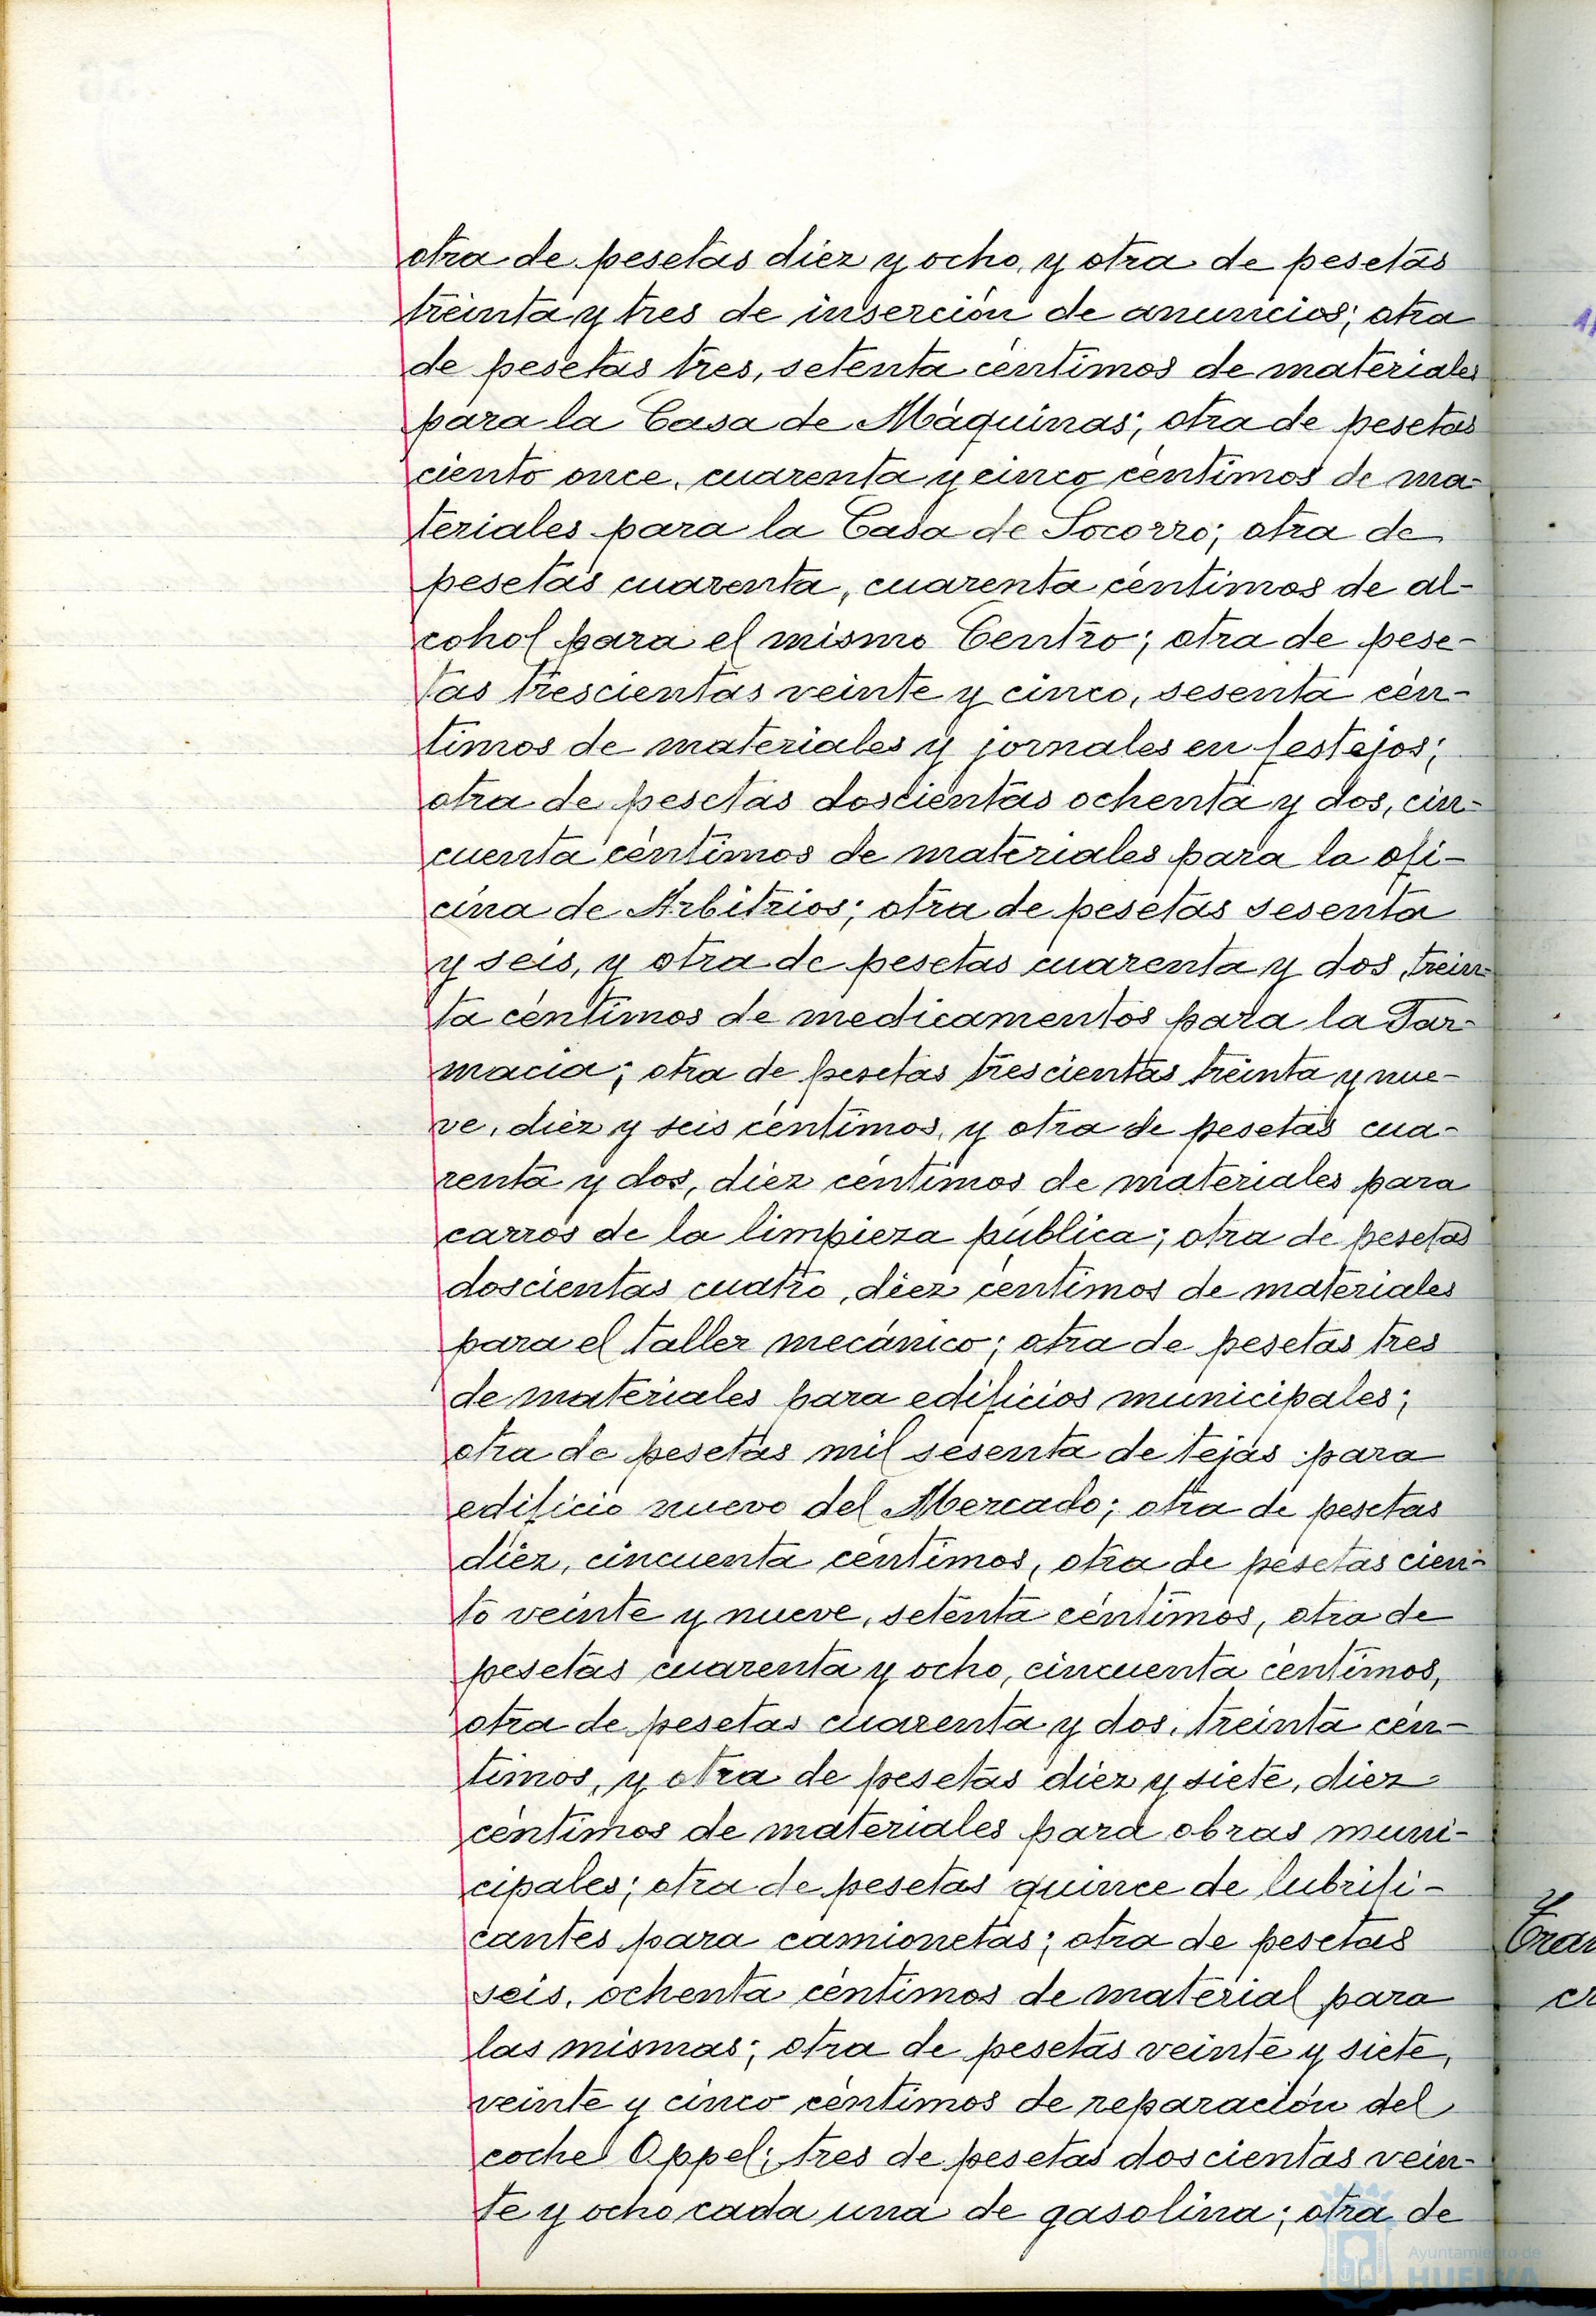 otra de pesetas diez y ocho, y otra de pesetas
treinta y tres de inserción de anuncios; otra
de pesetas tres, setenta céntimos de materiales
para la Casa de Máquinas; otra de pesetas
ciento once, cuarenta y cinco centimos de ma-
teriales para la Casa de Socorro; otra de
pesetas cuarenta, cuarenta céntimos de al-
cohol para el mismo Centro; otra de pese-
tas trescientas veinte y cinco, sesenta cén-
timos de materiales y jornales en festejos;
otra de pesetas doscientas ochenta y dos, cin-
cuenta céntimos de materiales para la ofi-
cina de Arbitrios; otra de pesetas sesenta
y seis, y otra de pesetas cuarenta y dos, trein-
ta céntimos de medicamentos para la Far-
macia; otra de pesetas trescientas treinta y nue-
ve, diez y seis céntimos, y otra de pesetas cua-
renta y dos, diez céntimos de materiales para
carros de la limpieza pública; otra de pesetas
doscientas cuatro, diez centimos de materiales
para el taller mecánico; otra de pesetas tres
de materiales para edificios municipales;
otra de pesetas mil sesenta de tejas para
edificio nuevo del Mercado; otra de pesetas
diez, cincuenta céntimos, otra de pesetas cien-
to veinte y nueve, setenta céntimos, otra de
pesetas cuarenta y ocho, cincuenta céntimos,
otra de pesetas cuarenta y dos, treinta cén-
timos, y otra de pesetas diez y siete, diez
céntimos de materiales para obras muni-
cipales; otra de pesetas quince de lubrifi-
cantes para camionetas; otra de pesetas
seis, ochenta céntimos de material para
las mismas; otra de pesetas veinte y siete,
veinte y cinco céntimos de reparación del
coche Oppel; tres de pesetas doscientas vein-
te y ocho cada una de gasolina; otra de
Ayuntamiento de
HUELVA